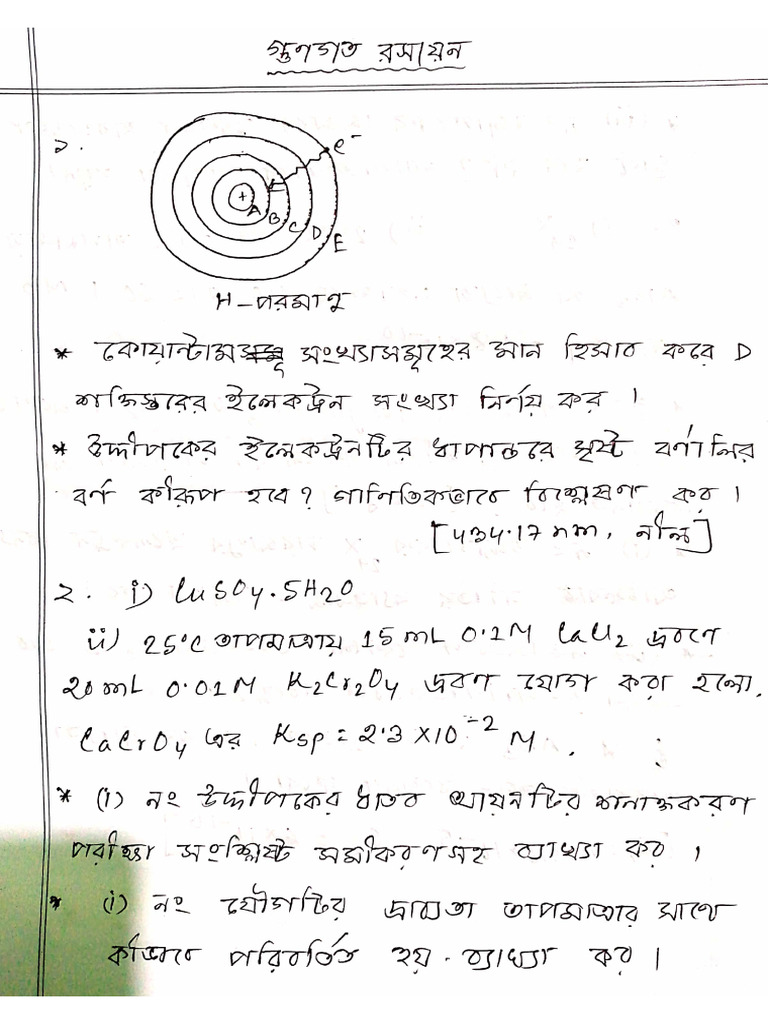 গুণগত রসায়ন
১.
e⁻
+ A B C D E
H-পরমাণু
* কোয়ান্টাম সংখ্যাসমূহের মান হিসাব করে D
শক্তিস্তরের ইলেকট্রন সংখ্যা নির্ণয় কর।
* উদ্দীপকের ইলেকট্রনটির ধাপান্তরে সৃষ্ট বর্ণালির
বর্ণ কীরূপ হবে? গাণিতিকভাবে বিশ্লেষণ কর।
[434.17 nm, নীল]
২. i) CuSO4.5H2O
ii) 25°C তাপমাত্রায় 15 mL 0.1M CaCl2 দ্রবণে
20 mL 0.01M K2Cr2O4 দ্রবণ যোগ করা হলো.
CaCrO4 এর Ksp = 2.3 X10⁻² M.
* (i) নং উদ্দীপকের ধাতব আয়নটির শনাক্তকরণ
পরীক্ষা সংশ্লিষ্ট সমীকরণসহ ব্যাখ্যা কর।
* (i) নং যৌগটির দ্রাব্যতা তাপমাত্রার সাথে
কীভাবে পরিবর্তিত হয়. ব্যাখ্যা কর।